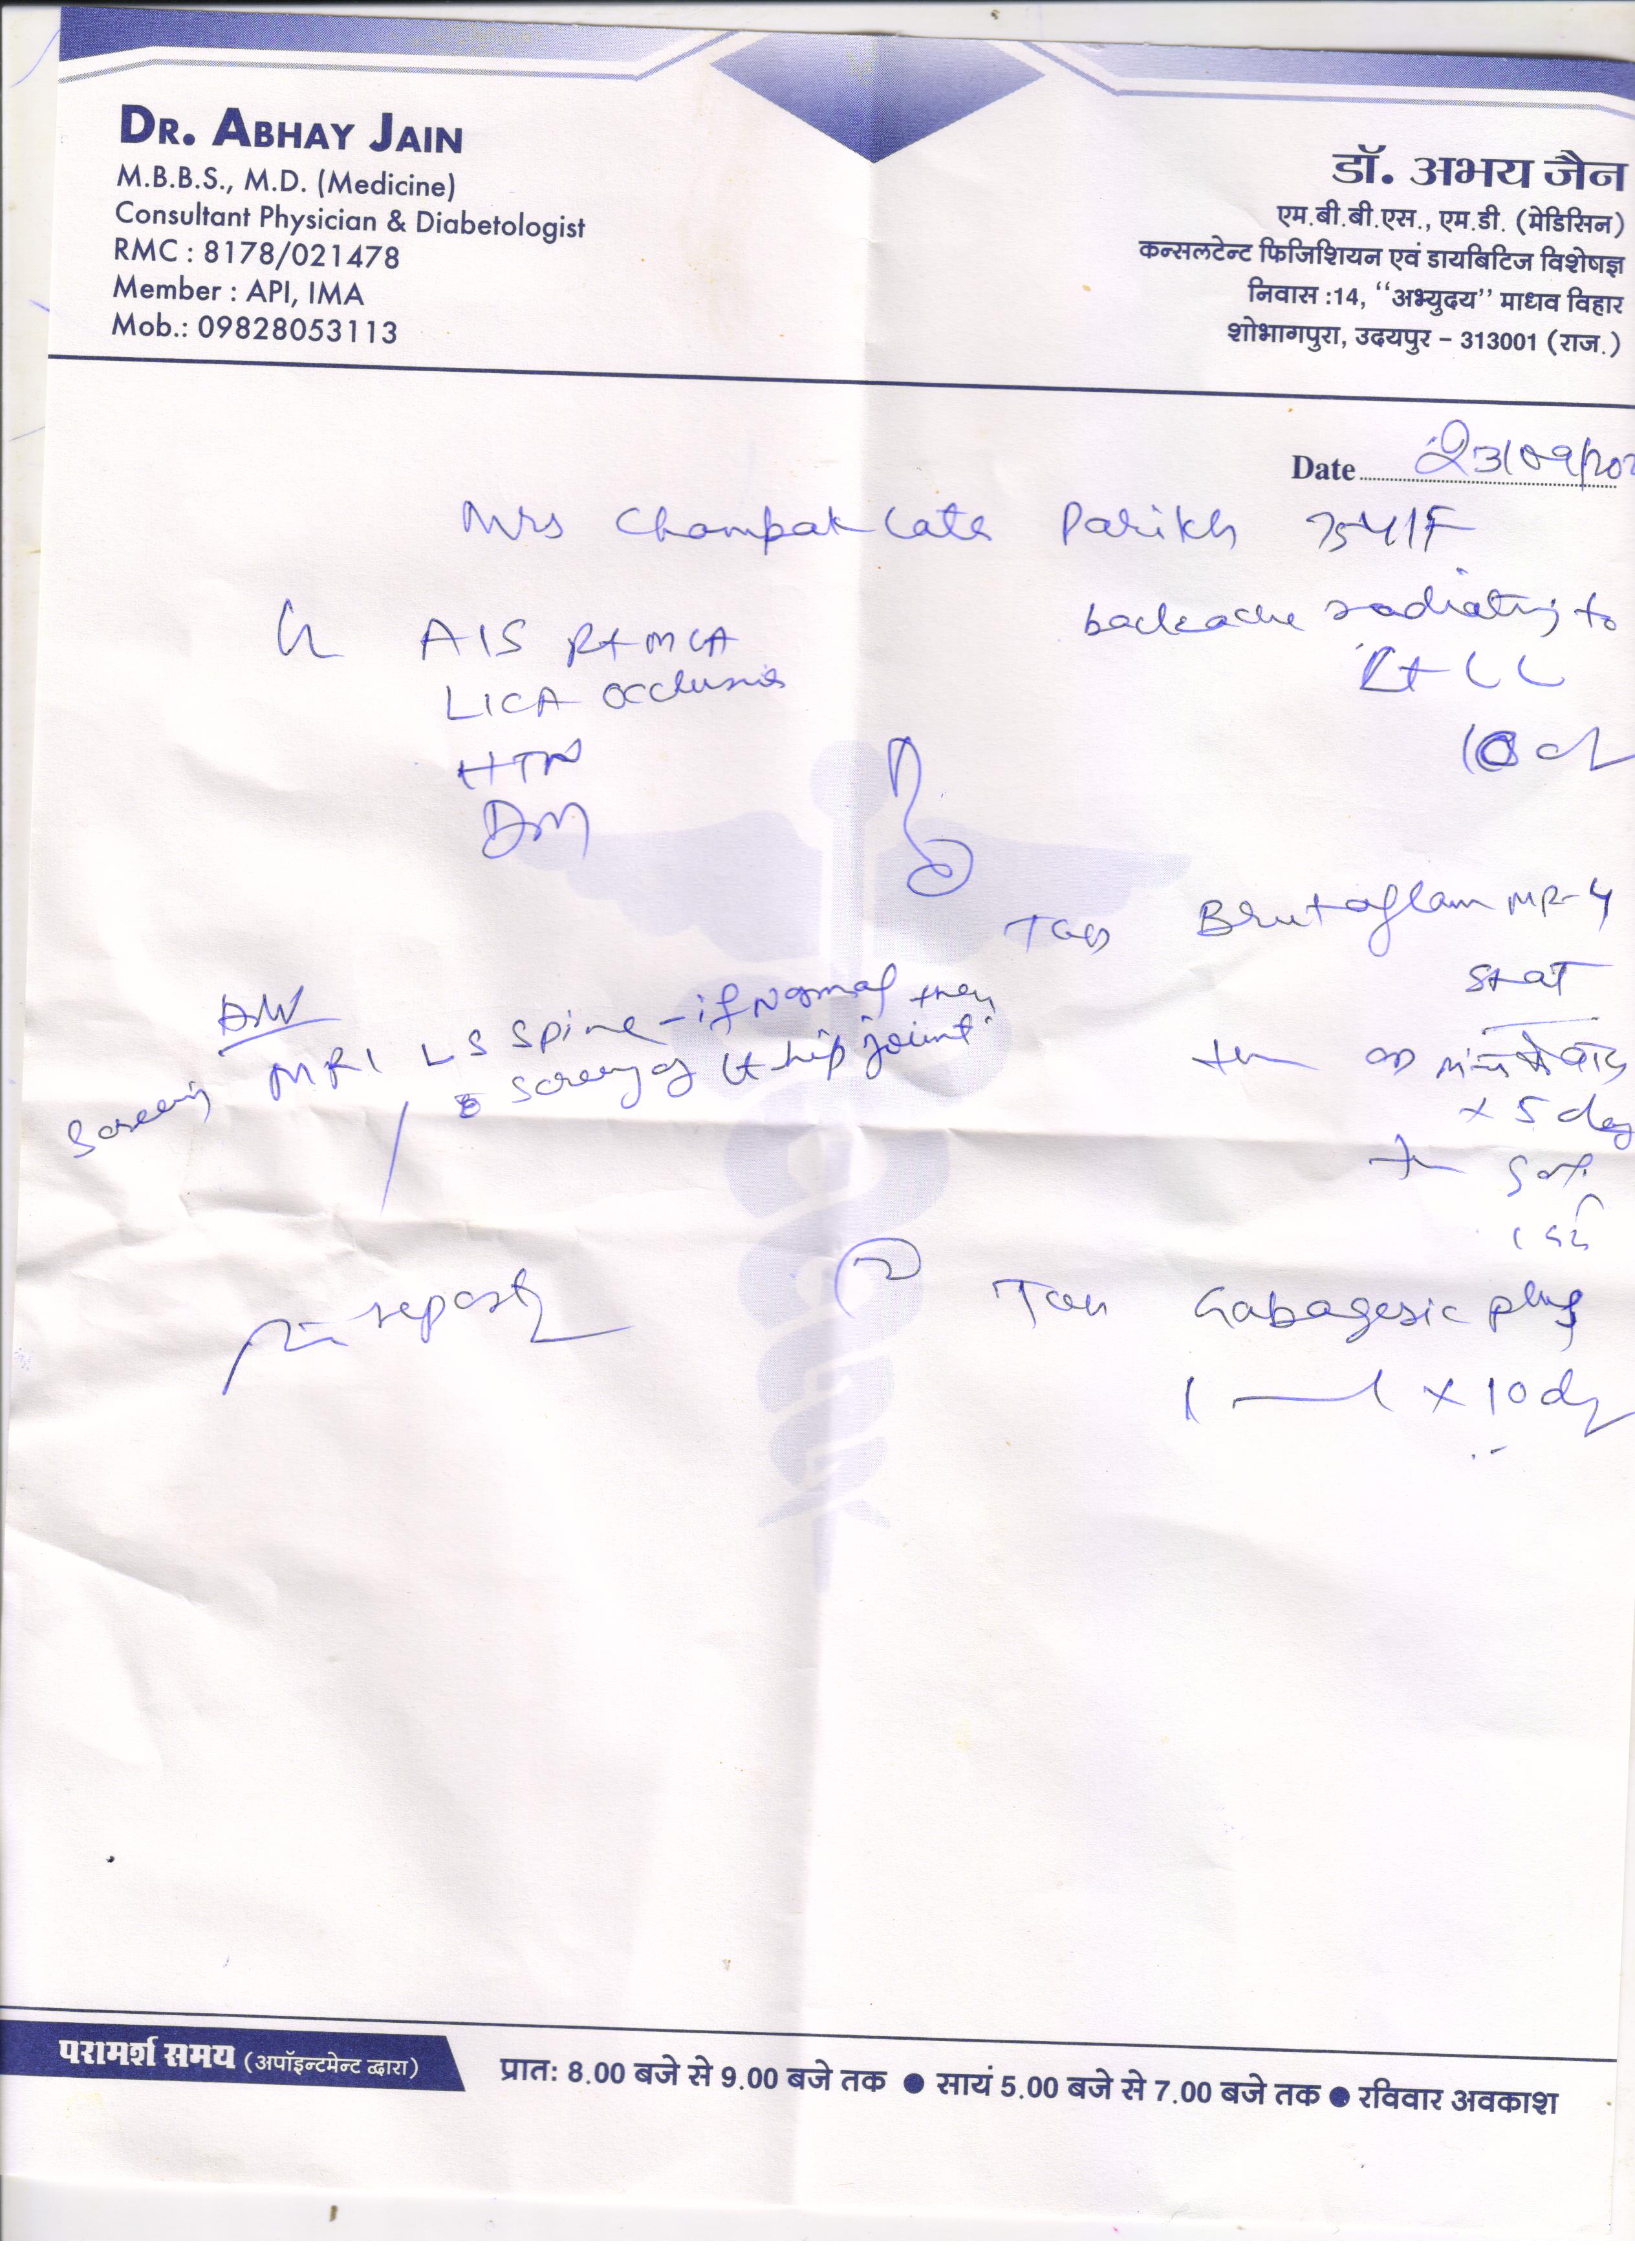 DR. ABHAY JAIN
M.B.B.S., M.D. (Medicine)
Consultant Physician & Diabetologist
RMC : 8178/021478
Member : API, IMA
Mob.: 09828053113
डॉ. अभय जैन
एम.बी.बी.एस., एम.डी. (मेडिसिन)
कन्सलटेन्ट फिजिशियन एवं डायबिटिज विशेषज्ञ
निवास :14, "अभ्युदय" माधव विहार
शोभागपुरा, उदयपुर - 313001 (राज.)
Date 23/09/202
Mrs Champak Lata Parikh 75y/F
AIS Rt MCA
LICA occlusion
HTN
DM
backache radiating to
Rt LL
Tab Brutaflam MR-4
stat
x 5 day
Adv
Screening MRI LS Spine - if Normal then
screening of hip joint
report
2 Tab Gabagesic plus
1 — 1 x 10 dy
परामर्श समय (अपॉइन्टमेन्ट द्वारा)
प्रात: 8.00 बजे से 9.00 बजे तक ● सायं 5.00 बजे से 7.00 बजे तक ● रविवार अवकाश